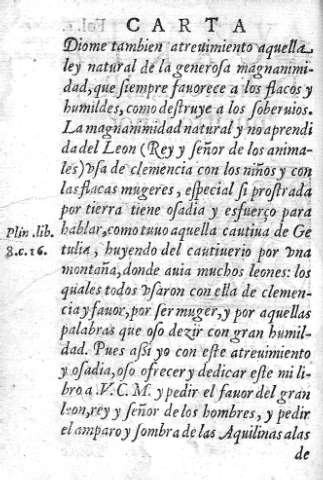 CARTA
Diome tambien atreuimiento aquella
ley natural de la generosa magnanimi-
dad, que siempre fauorece a los flacos y
humildes, como destruye a los soberuios.
La magnanimidad natural y no aprendi
da del Leon (Rey y señor de los anima-
les) vsa de clemencia con los niños y con
las flacas mugeres, especial si prostrada
por tierra tiene osadia y esfuerço para
Plin. lib. hablar, como tuuo aquella catiua de Ge
8.c.16. tulia, huyendo del catiuerio por vna
montaña, donde auia muchos leones: los
quales todos vsaron con ella de clemen-
cia y fauor, por ser muger, y por aquellas
palabras que oso dezir con gran humil-
dad. Pues assi yo con este atreuimiento
y osadia, oso ofrecer y dedicar este mi li-
bro a .V.C.M. y pedir el fauor del gran
leon, rey y señor de los hombres, y pedir
el amparo y sombra de las Aquilinas alas
de